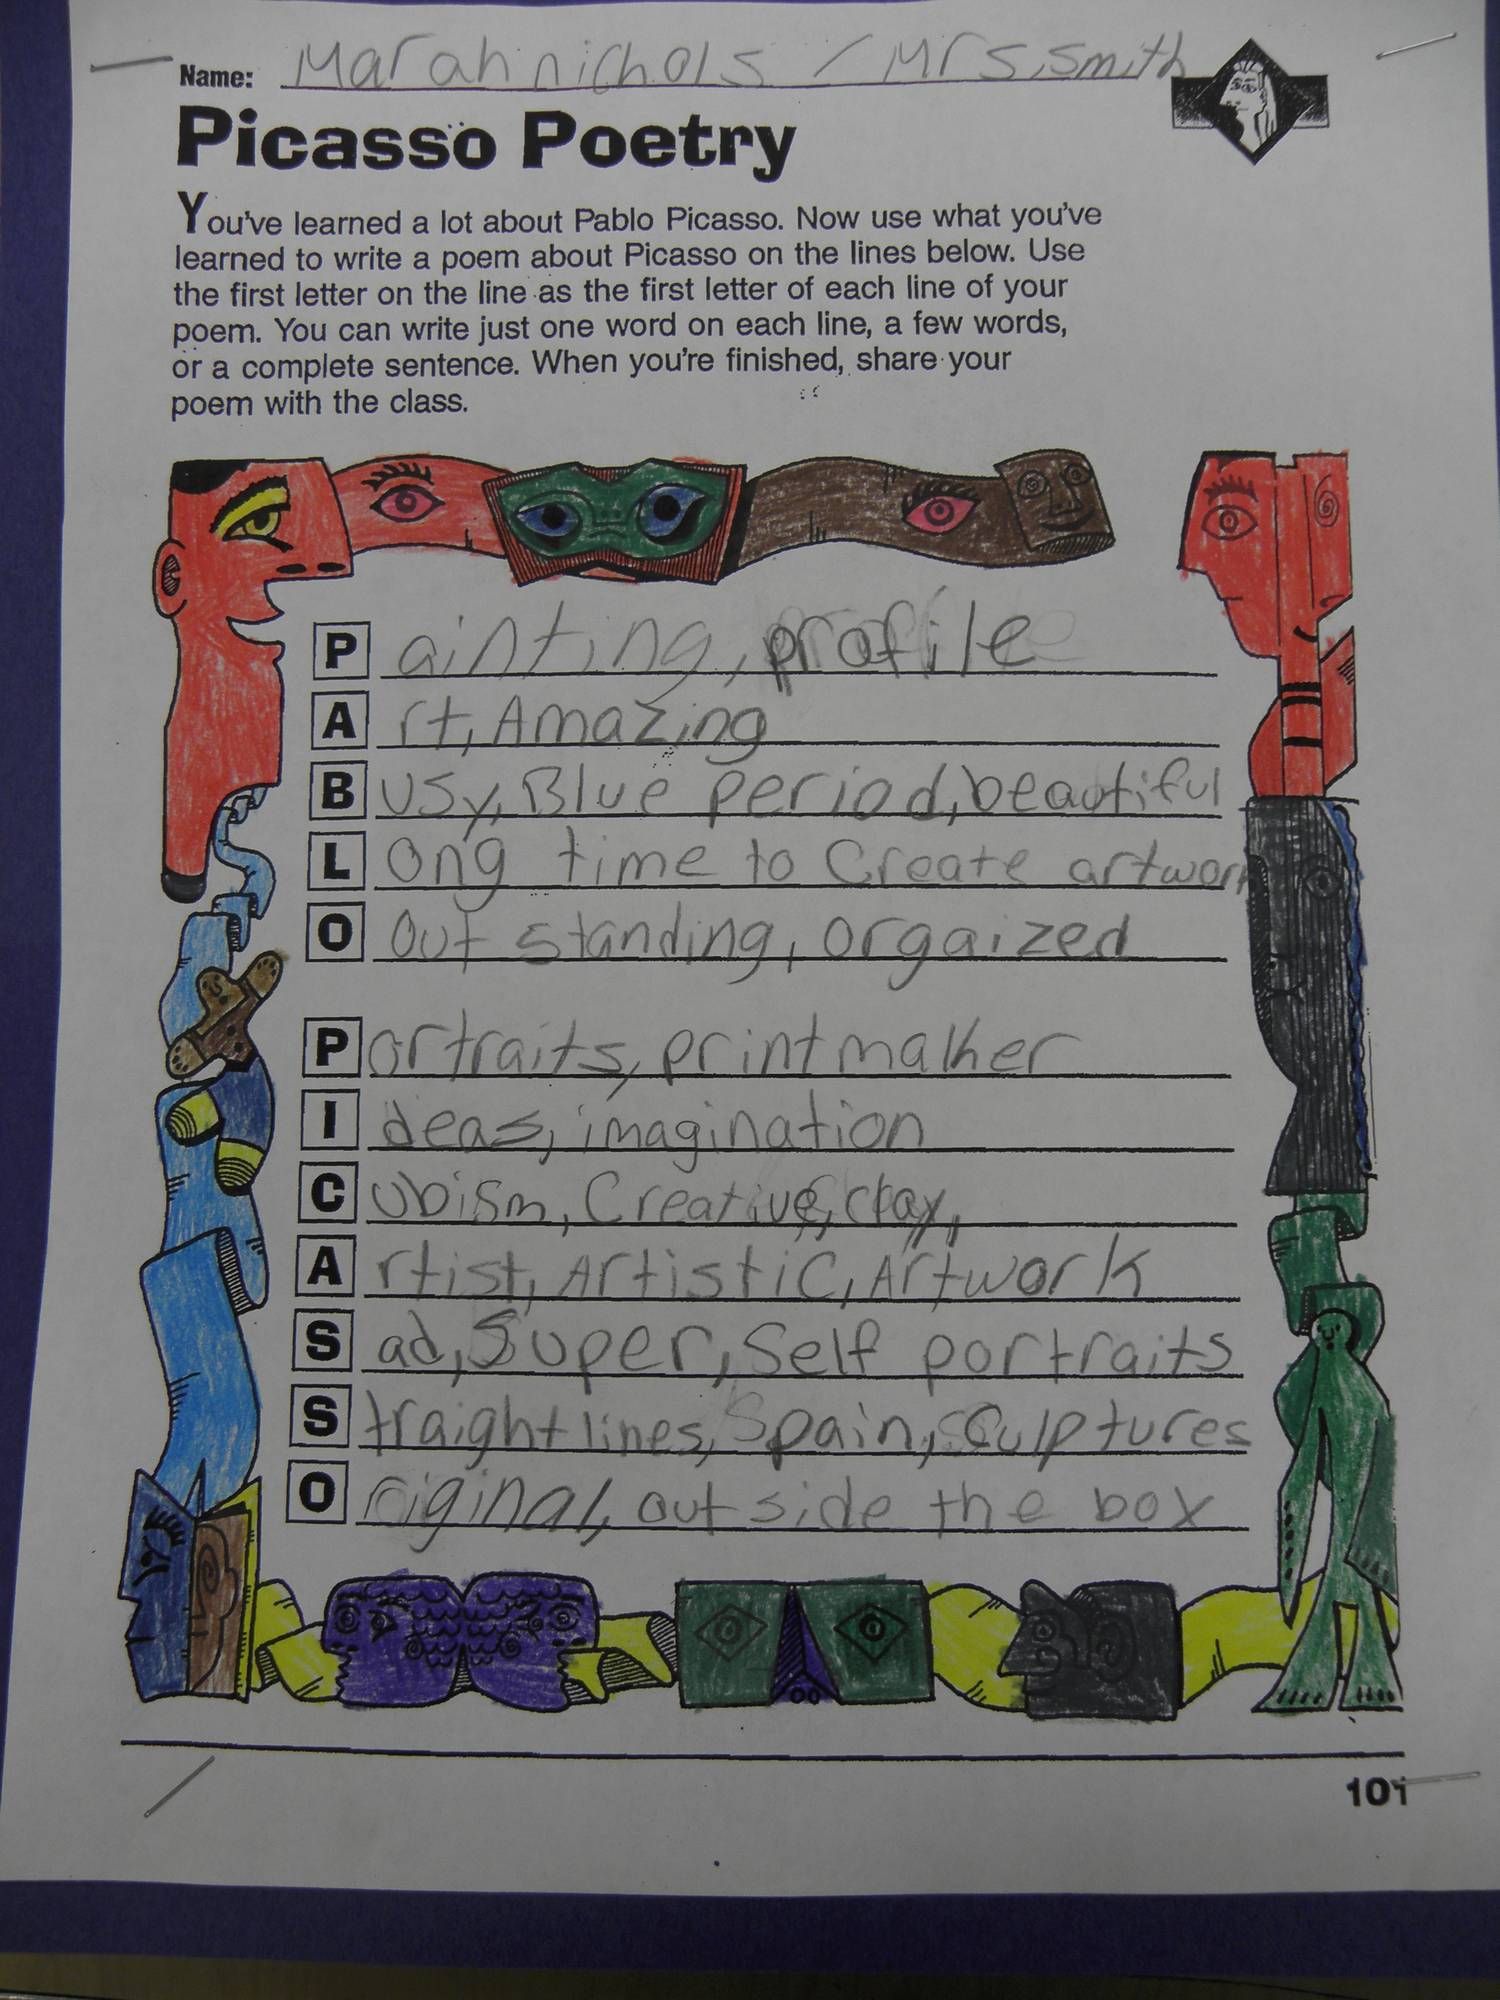 Name: Marah nichols / Mrs. Smith
Picasso Poetry
You've learned a lot about Pablo Picasso. Now use what you've
learned to write a poem about Picasso on the lines below. Use
the first letter on the line as the first letter of each line of your
poem. You can write just one word on each line, a few words,
or a complete sentence. When you're finished, share your
poem with the class.
Painting, profile
Art, Amazing
Busy, Blue period, beautiful
Long time to Create artwork
O Out standing, orgaized
Portraits, printmaker
Ideas, imagination
Cubism, Creative, clay,
Artist, Artistic, Artwork
Sad, Super, Self portraits
Straight lines, Spain, Sculptures
Original, out side the box
101